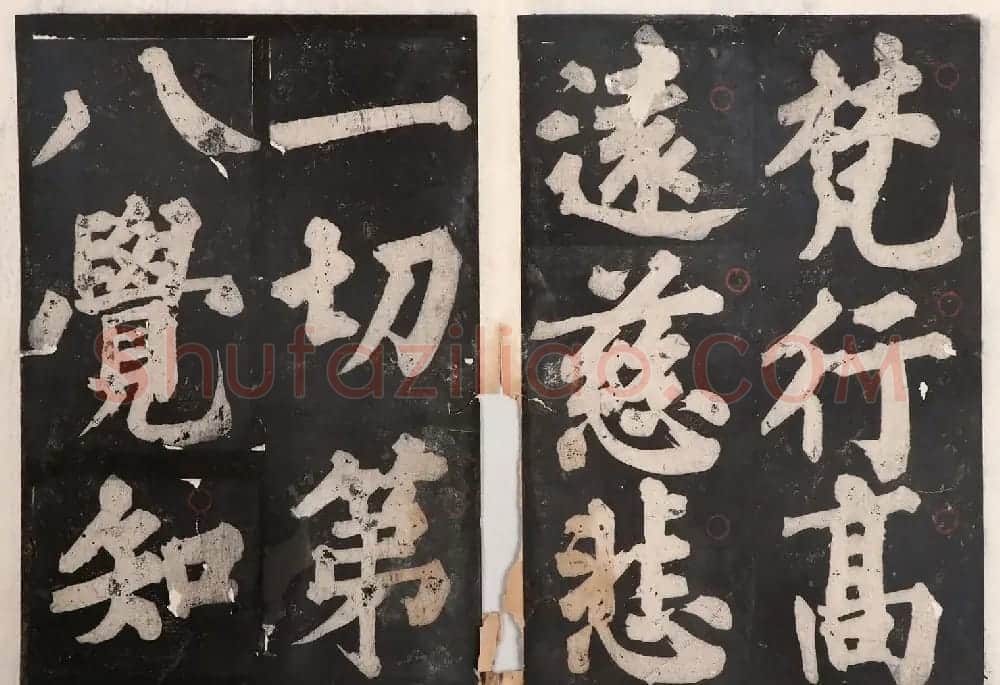 梵行高
遠慈悲
一切第
八覺知
shufaziliao.COM